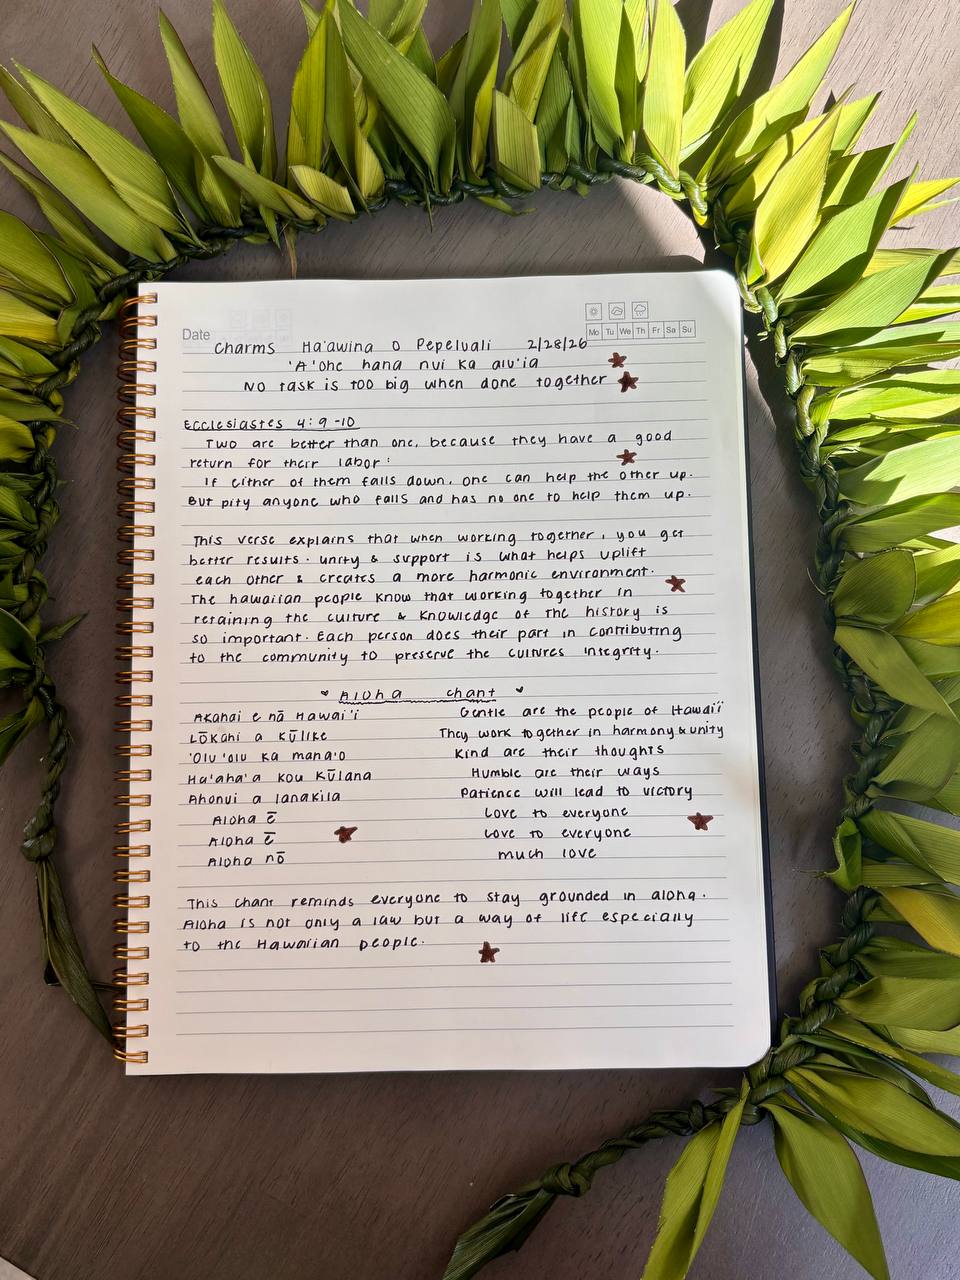 Date
Mo Tu We Th Fr Sa Su
Charms Ha'awina o Pepeluali 2/28/26
'A'ohe hana nui ka alu'ia
No task is too big when done together
Ecclesiastes 4:9-10
Two are better than one, because they have a good
return for their labor:
If either of them falls down, one can help the other up.
But pity anyone who falls and has no one to help them up.
This verse explains that when working together, you get
better results. unity & support is what helps uplift
each other & creates a more harmonic environment.
The hawaiian people know that working together in
retaining the culture & knowledge of the history is
so important. Each person does their part in contributing
to the community to preserve the cultures integrity.
Aloha chant
Akahai e nā Hawai'i Gentle are the people of Hawaii
Lōkahi a kūlike They work together in harmony & unity
'olu 'olu ka mana'o Kind are their thoughts
Ha'aha'a kou kūlana Humble are their ways
Ahonui a lanakila Patience will lead to victory
Aloha ē Love to everyone
Aloha ē Love to everyone
Aloha nō much love
This chant reminds everyone to stay grounded in aloha.
Aloha is not only a law but a way of life especially
to the Hawaiian people.